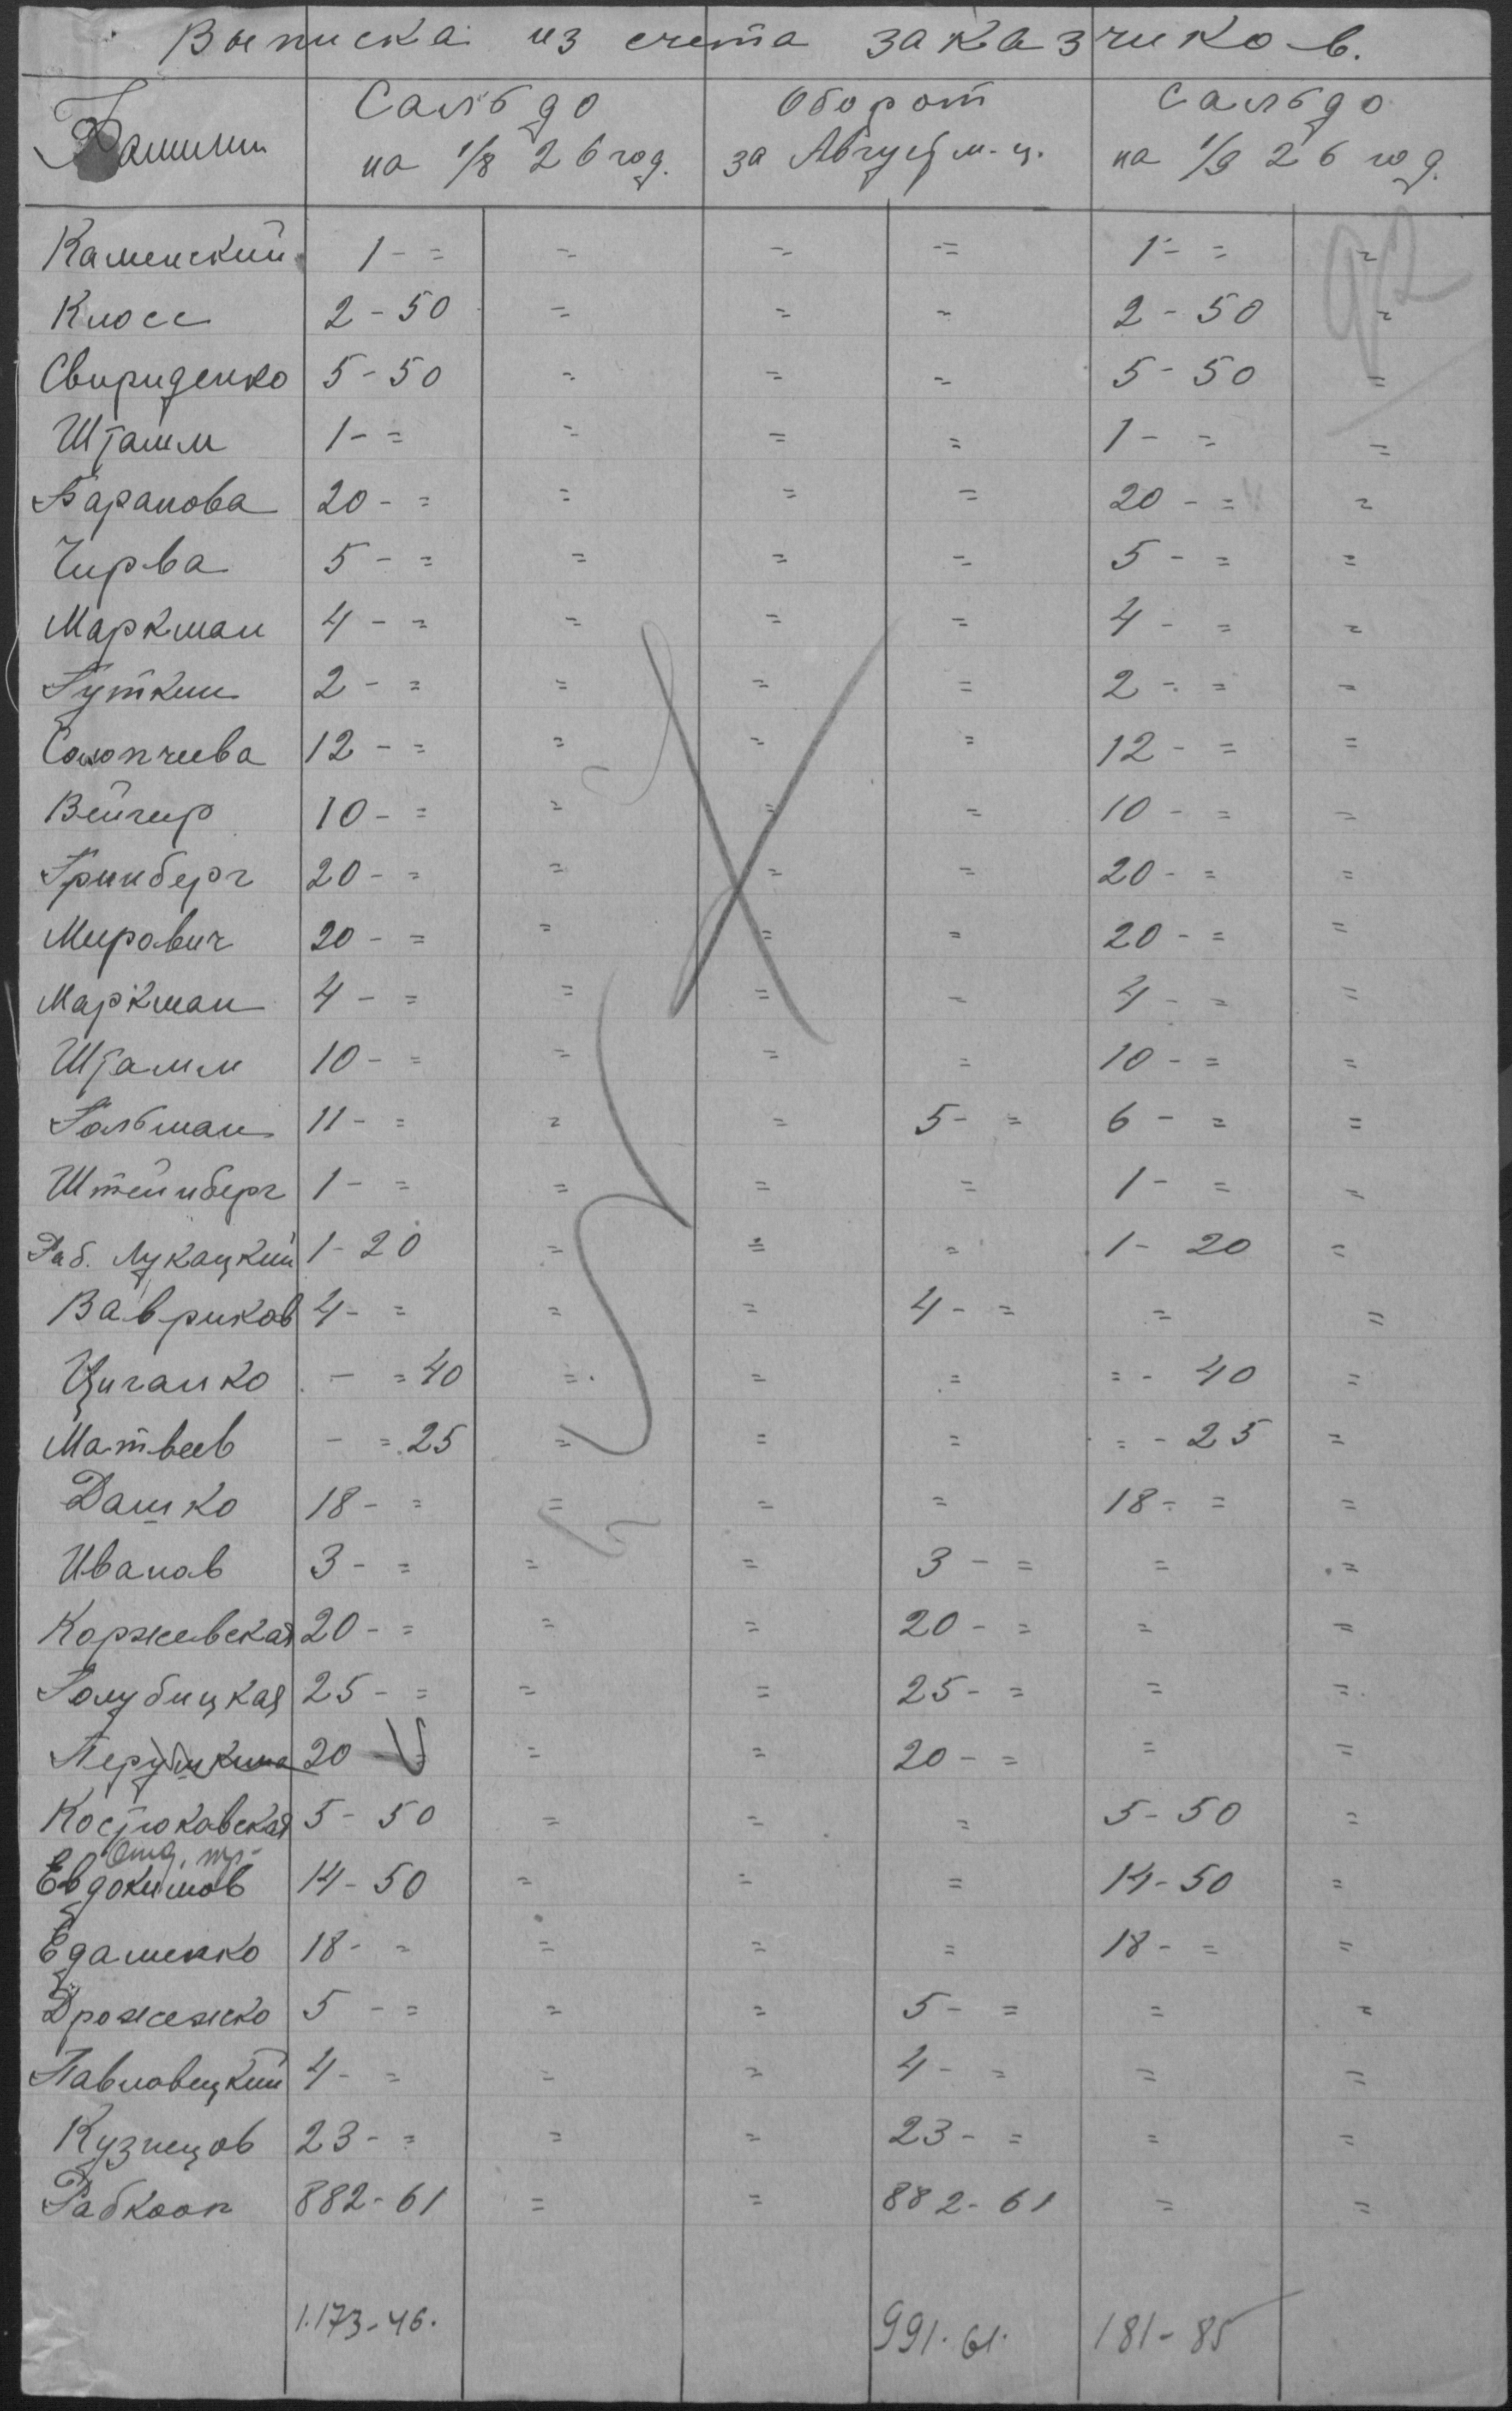 Выписка из счета заказчиков.
Фамилии Сальдо на 1/8 26 год. Оборот за Август м-ц. Сальдо на 1/9 26 год.
92
Каменский 1 - = = = = 1 - = =
Клосс 2 - 50 = = = 2 - 50 =
Свириденко 5 - 50 = = = 5 - 50 =
Штамм 1 - = = = = 1 - = =
Баранова 20 - = = = = 20 - = =
Чирва 5 - = = = = 5 - = =
Маркман 4 - = = = = 4 - = =
Гуткин 2 - = = = = 2 - = =
Солопчева 12 - = = = = 12 - = =
Вейгер 10 - = = = = 10 - = =
Гринберг 20 - = = = = 20 - = =
Мирович 20 - = = = = 20 - = =
Маркман 4 - = = = = 4 - = =
Штамм 10 - = = = = 10 - = =
Гольман 11 - = = = 5 - = 6 - = =
Штейнберг 1 - = = = = 1 - = =
Раб. Лукацкий 1 - 20 = = = 1 - 20 =
Вавриков 4 - = = = 4 - = = =
Циганко - = 40 = = = = - 40 =
Матвеев - = 25 = = = = - 25 =
Дашко 18 - = = = = 18 - = =
Иванов 3 - = = = 3 - = = =
Коржевская 20 - = = = 20 - = = =
Голубицкая 25 - = = = 25 - = = =
Перушкина 20 - = = = 20 - = = =
Костюковская 5 - 50 = = = 5 - 50 =
Евдокимов 14 - 50 = = = 14 - 50 =
Едаменко 18 - = = = = 18 - = =
Дрожежко 5 - = = = 5 - = = =
Павловецкий 4 - = = = 4 - = = =
Кузнецов 23 - = = = 23 - = = =
Рабкооп 882 - 61 = = 882 - 61 = =
1.173 - 46. 991. 61. 181 - 85